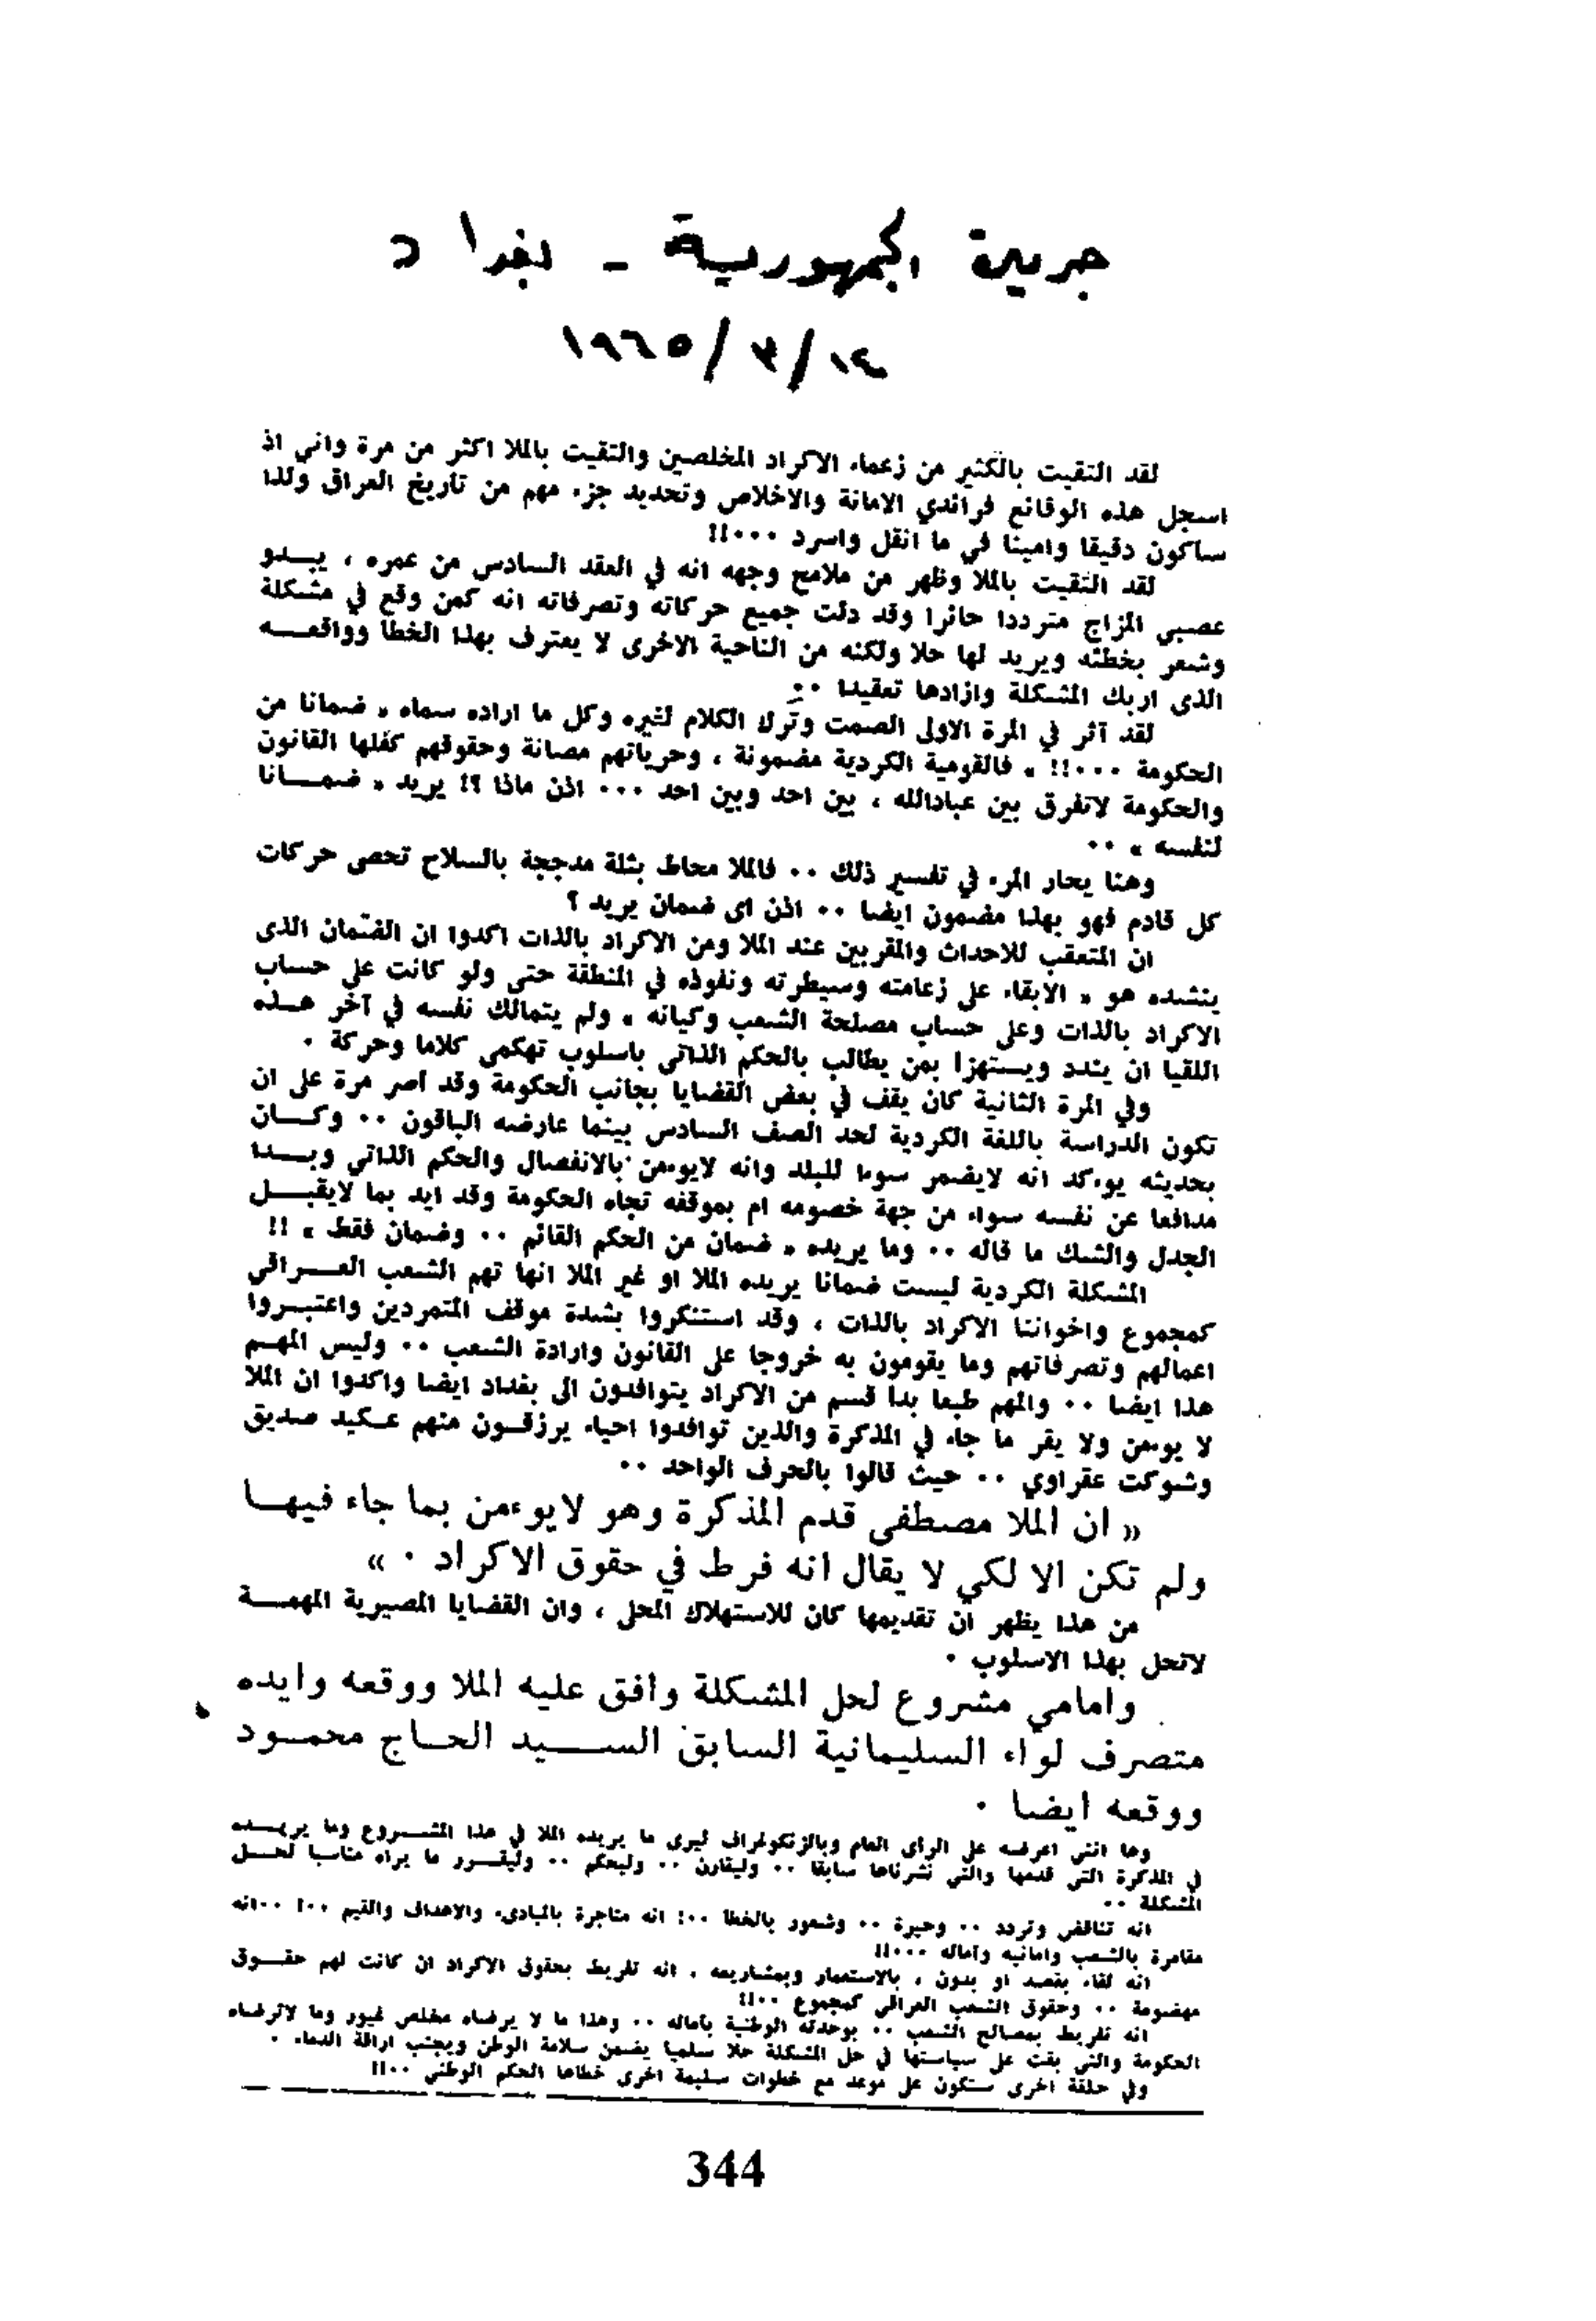 جريدة الجمهورية - بغداد
١٤/٣/١٩٦٥
لقد التقيت بالكثير من زعماء الاكراد المخلصين والتقيت بالملا اكثر من مرة واني اذ
اسجل هذه الوقائع فرائدي الامانة والاخلاص وتحديد جزء مهم من تاريخ العراق ولذا
ساكون دقيقا وامينا في ما انقل واسرد ٠٠٠!!
لقد التقيت بالملا وظهر من ملامح وجهه انه في العقد السادس من عمره ، يبدو
عصبي المزاج مترددا حائرا وقد دلت جميع حركاته وتصرفاته انه كمن وقع في مشكلة
وشعر بخطئه ويريد لها حلا ولكنه من الناحية الاخرى لا يعترف بهذا الخطأ وواقعه
الذى اربك المشكلة وازادها تعقيدا ٠٠
لقد آثر في المرة الاولى الصمت وترك الكلام لغيره وكل ما اراده سماه « ضمانا من
الحكومة ٠٠٠!! » فالقومية الكردية مضمونة ، وحرياتهم مصانة وحقوقهم كفلها القانون
والحكومة لاتفرق بين عبادالله ، بين احد وبين احد ٠٠٠ اذن ماذا ؟! يريد « ضمانا
لنفسه » ٠٠
وهنا يحار المرء في تفسير ذلك ٠٠ فالملا محاط بثلة مدججة بالسلاح تحصى حركات
كل قادم فهو بهذا مضمون ايضا ٠٠ اذن اى ضمان يريد ؟
ان المتعقب للاحداث والمقربين عند الملا ومن الاكراد بالذات اكدوا ان الضمان الذى
ينشده هو « الابقاء على زعامته وسيطرته ونفوذه في المنطقة حتى ولو كانت على حساب
الاكراد بالذات وعلى حساب مصلحة الشعب وكيانه » ولم يتمالك نفسه في آخر هذه
اللقيا ان يندد ويستهزا بمن يطالب بالحكم الذاتى باسلوب تهكمى كلاما وحركة ٠
وفي المرة الثانية كان يقف في بعض القضايا بجانب الحكومة وقد اصر مرة على ان
تكون الدراسة باللغة الكردية لحد الصف السادس بينما عارضه الباقون ٠٠ وكان
بحديثه يوءكد انه لايضمر سوءا للبلد وانه لايوءمن بالانفصال والحكم الذاتي وبدا
مدافعا عن نفسه سواء من جهة خصومه ام بموقفه تجاه الحكومة وقد ايد بما لايقبل
الجدل والشك ما قاله ٠٠ وما يريده « ضمان من الحكم القائم ٠٠ وضمان فقط » !!
المشكلة الكردية ليست ضمانا يريده الملا او غير الملا انها تهم الشعب العراقي
كمجموع واخواننا الاكراد بالذات ، وقد استنكروا بشدة موقف المتمردين واعتبروا
اعمالهم وتصرفاتهم وما يقومون به خروجا على القانون وارادة الشعب ٠٠ وليس المهم
هذا ايضا ٠٠ والمهم طبعا بدا قسم من الاكراد يتوافدون الى بغداد ايضا واكدوا ان الملا
لا يوءمن ولا يقر ما جاء في المذكرة والذين توافدوا احياء يرزقون منهم عكيد صديق
وشوكت عقراوي ٠٠ حيث قالوا بالحرف الواحد ٠٠
« ان الملا مصطفى قدم المذكرة وهو لايوءمن بما جاء فيها
ولم تكن الا لكي لا يقال انه فرط في حقوق الاكراد ٠ »
من هذا يظهر ان تقديمها كان للاستهلاك المحلى ، وان القضايا المصيرية المهمة
لاتحل بهذا الاسلوب ٠
وامامي مشروع لحل المشكلة وافق عليه الملا ووقعه وايده
متصرف لواء السليمانية السابق السيد الحاج محمود
ووقعه ايضا ٠
وها انني اعرضه على الراى العام وبالزنكوغراف ليرى ما يريده الملا في هذا المشروع وما يريده
في المذكرة التى قدمها والتي نشرناها سابقا ٠٠ وليقارن ٠٠ وليحكم ٠٠ وليقرر ما يراه مناسبا لحل
المشكلة ٠٠
انه تناقض وتردد ٠٠ وحيرة ٠٠ وشعور بالخطا ٠٠! انه متاجرة بالمبادىء والاهداف والقيم ٠٠! ٠٠انه
مقامرة بالشعب وامانيه وآماله ٠٠٠!!
انه لقاء بقصد او بدون ، بالاستعمار وبمشاريعه ، انه تفريط بحقوق الاكراد ان كانت لهم حقوق
مهضومة ٠٠ وحقوق الشعب العراقى كمجموع ٠٠!!
انه تفريط بمصالح الشعب ٠٠ بوحدته الوطنية بآماله ٠٠ وهذا ما لا يرضاه مخلص غيور وما لاترضاه
الحكومة والتى بقت على سياستها في حل المشكلة حلا سلميا يضمن سلامة الوطن ويجنب اراقة الدماء ٠
وفي حلقة اخرى ستكون على موعد مع خطوات سليمة اخرى خطاها الحكم الوطني ٠٠!!
344